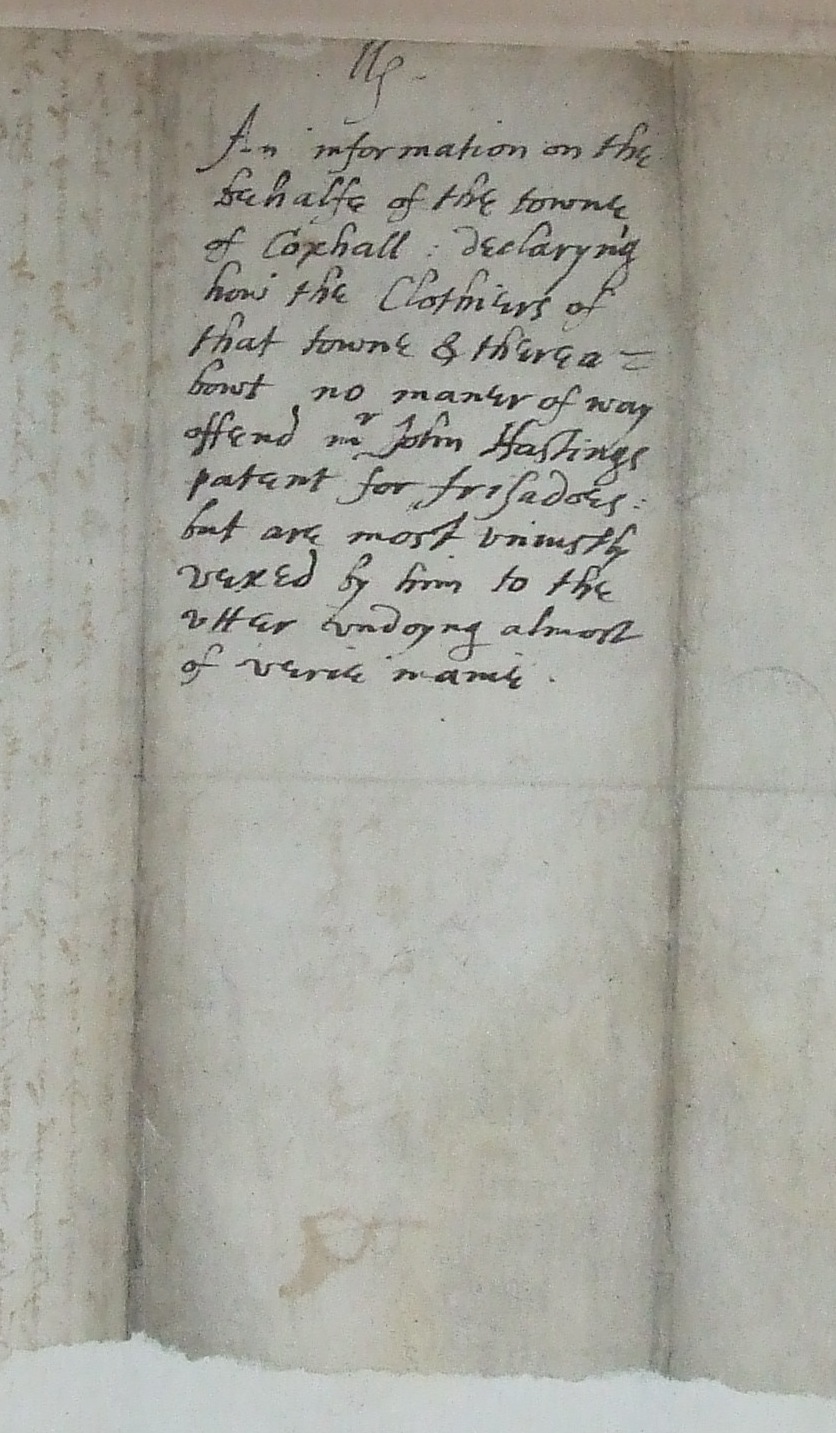 An information on the
behalfe of the towne
of Coxhall : declaryng
how the Clothiers of
that towne & therea=
bowt no maner of way
offend mr John Hastings
patent for frisadoes :
but are most vniustly
vexed by him to the
vtter vndoyng almost
of verie manie .